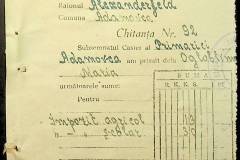 Raionul Alexanderfeld
Comuna Adamovca
Chitanța Nr. 92
Subsemnatul Casier al Primăriei
Adamovca am primit dela
Maria
următoarele sume:
SUMA
Pentru
Impozit agricol 13
" " școlar 30